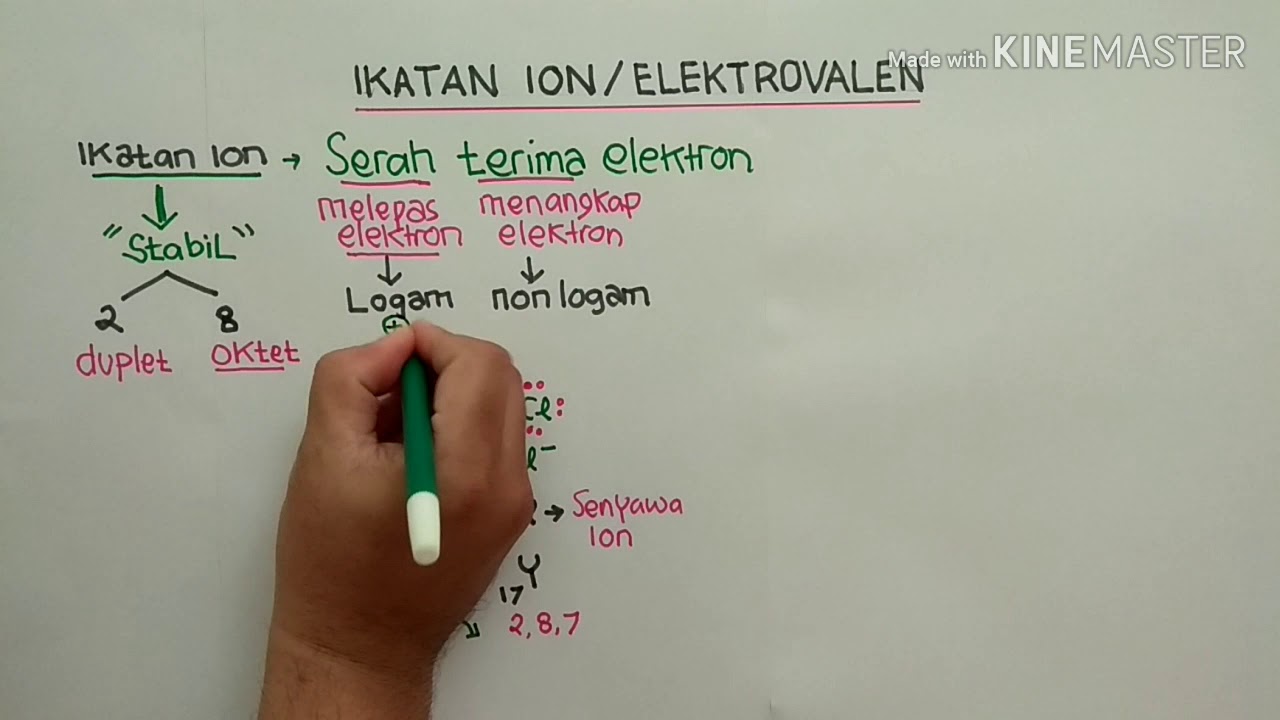 Made with KINEMASTER
IKATAN ION/ELEKTROVALEN
Ikatan Ion → Serah terima elektron
melepas elektron
menangkap elektron
"StabiL"
Logam
non logam
2
8
+
duplet
oktet
Cl
l⁻
→ Senyawa
Ion
17 Y
2,8,7